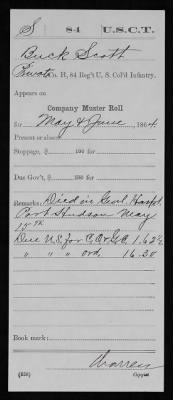 S 84 U.S.C.T.
Buck Scott
Private, Co. H, 84 Reg't U. S. Col'd Infantry.
Appears on
Company Muster Roll
for May & June, 1864.
Present or absent
Stoppage, $ 100 for
Due Gov't, $ 100 for
Remarks: Died in Genl. Hospt.
Port Hudson May
15th
Due U.S. for C. O. & G. E. 1.62
" " " ord. 16.20
Book mark:
Copyist